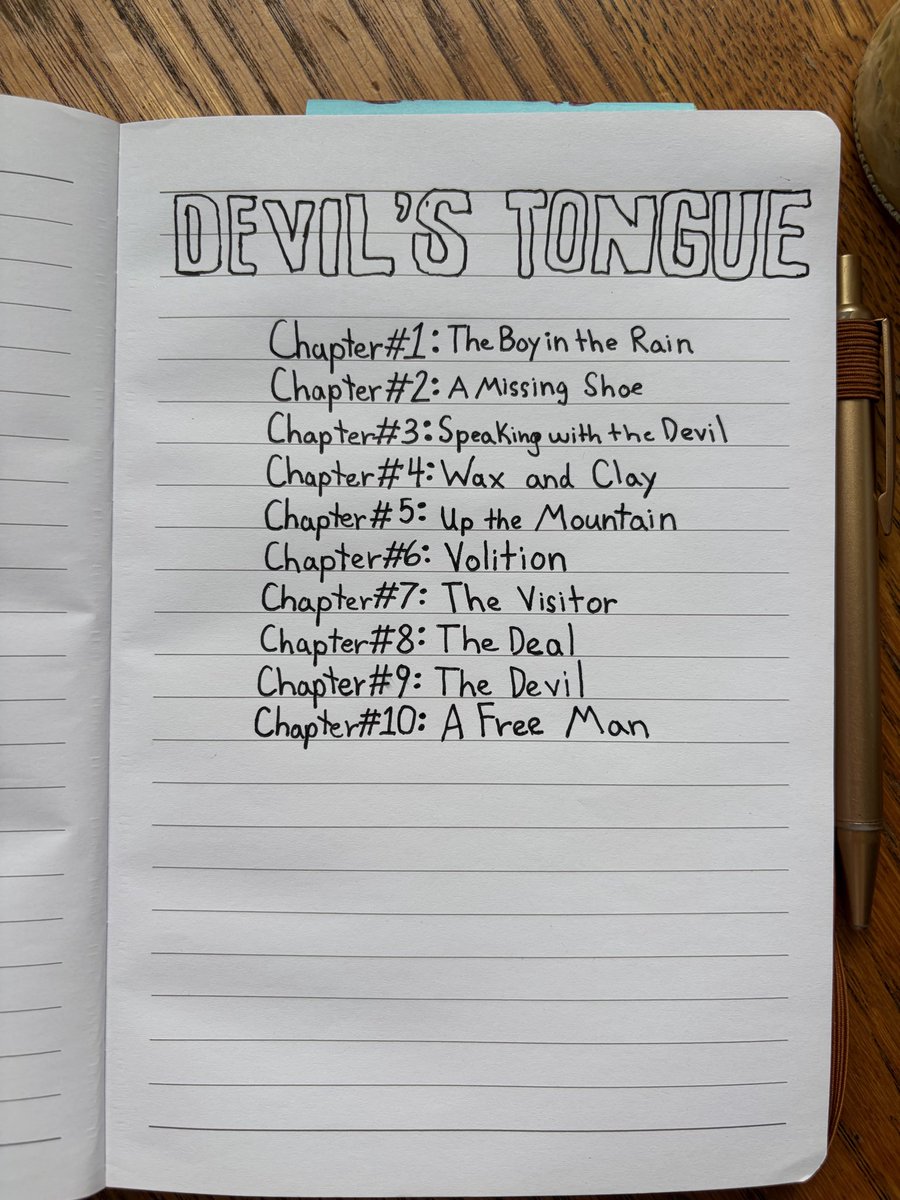 DEVIL'S TONGUE
Chapter#1: The Boy in the Rain
Chapter#2: A Missing Shoe
Chapter#3: Speaking with the Devil
Chapter#4: Wax and Clay
Chapter#5: Up the Mountain
Chapter#6: Volition
Chapter#7: The Visitor
Chapter#8: The Deal
Chapter#9: The Devil
Chapter#10: A Free Man